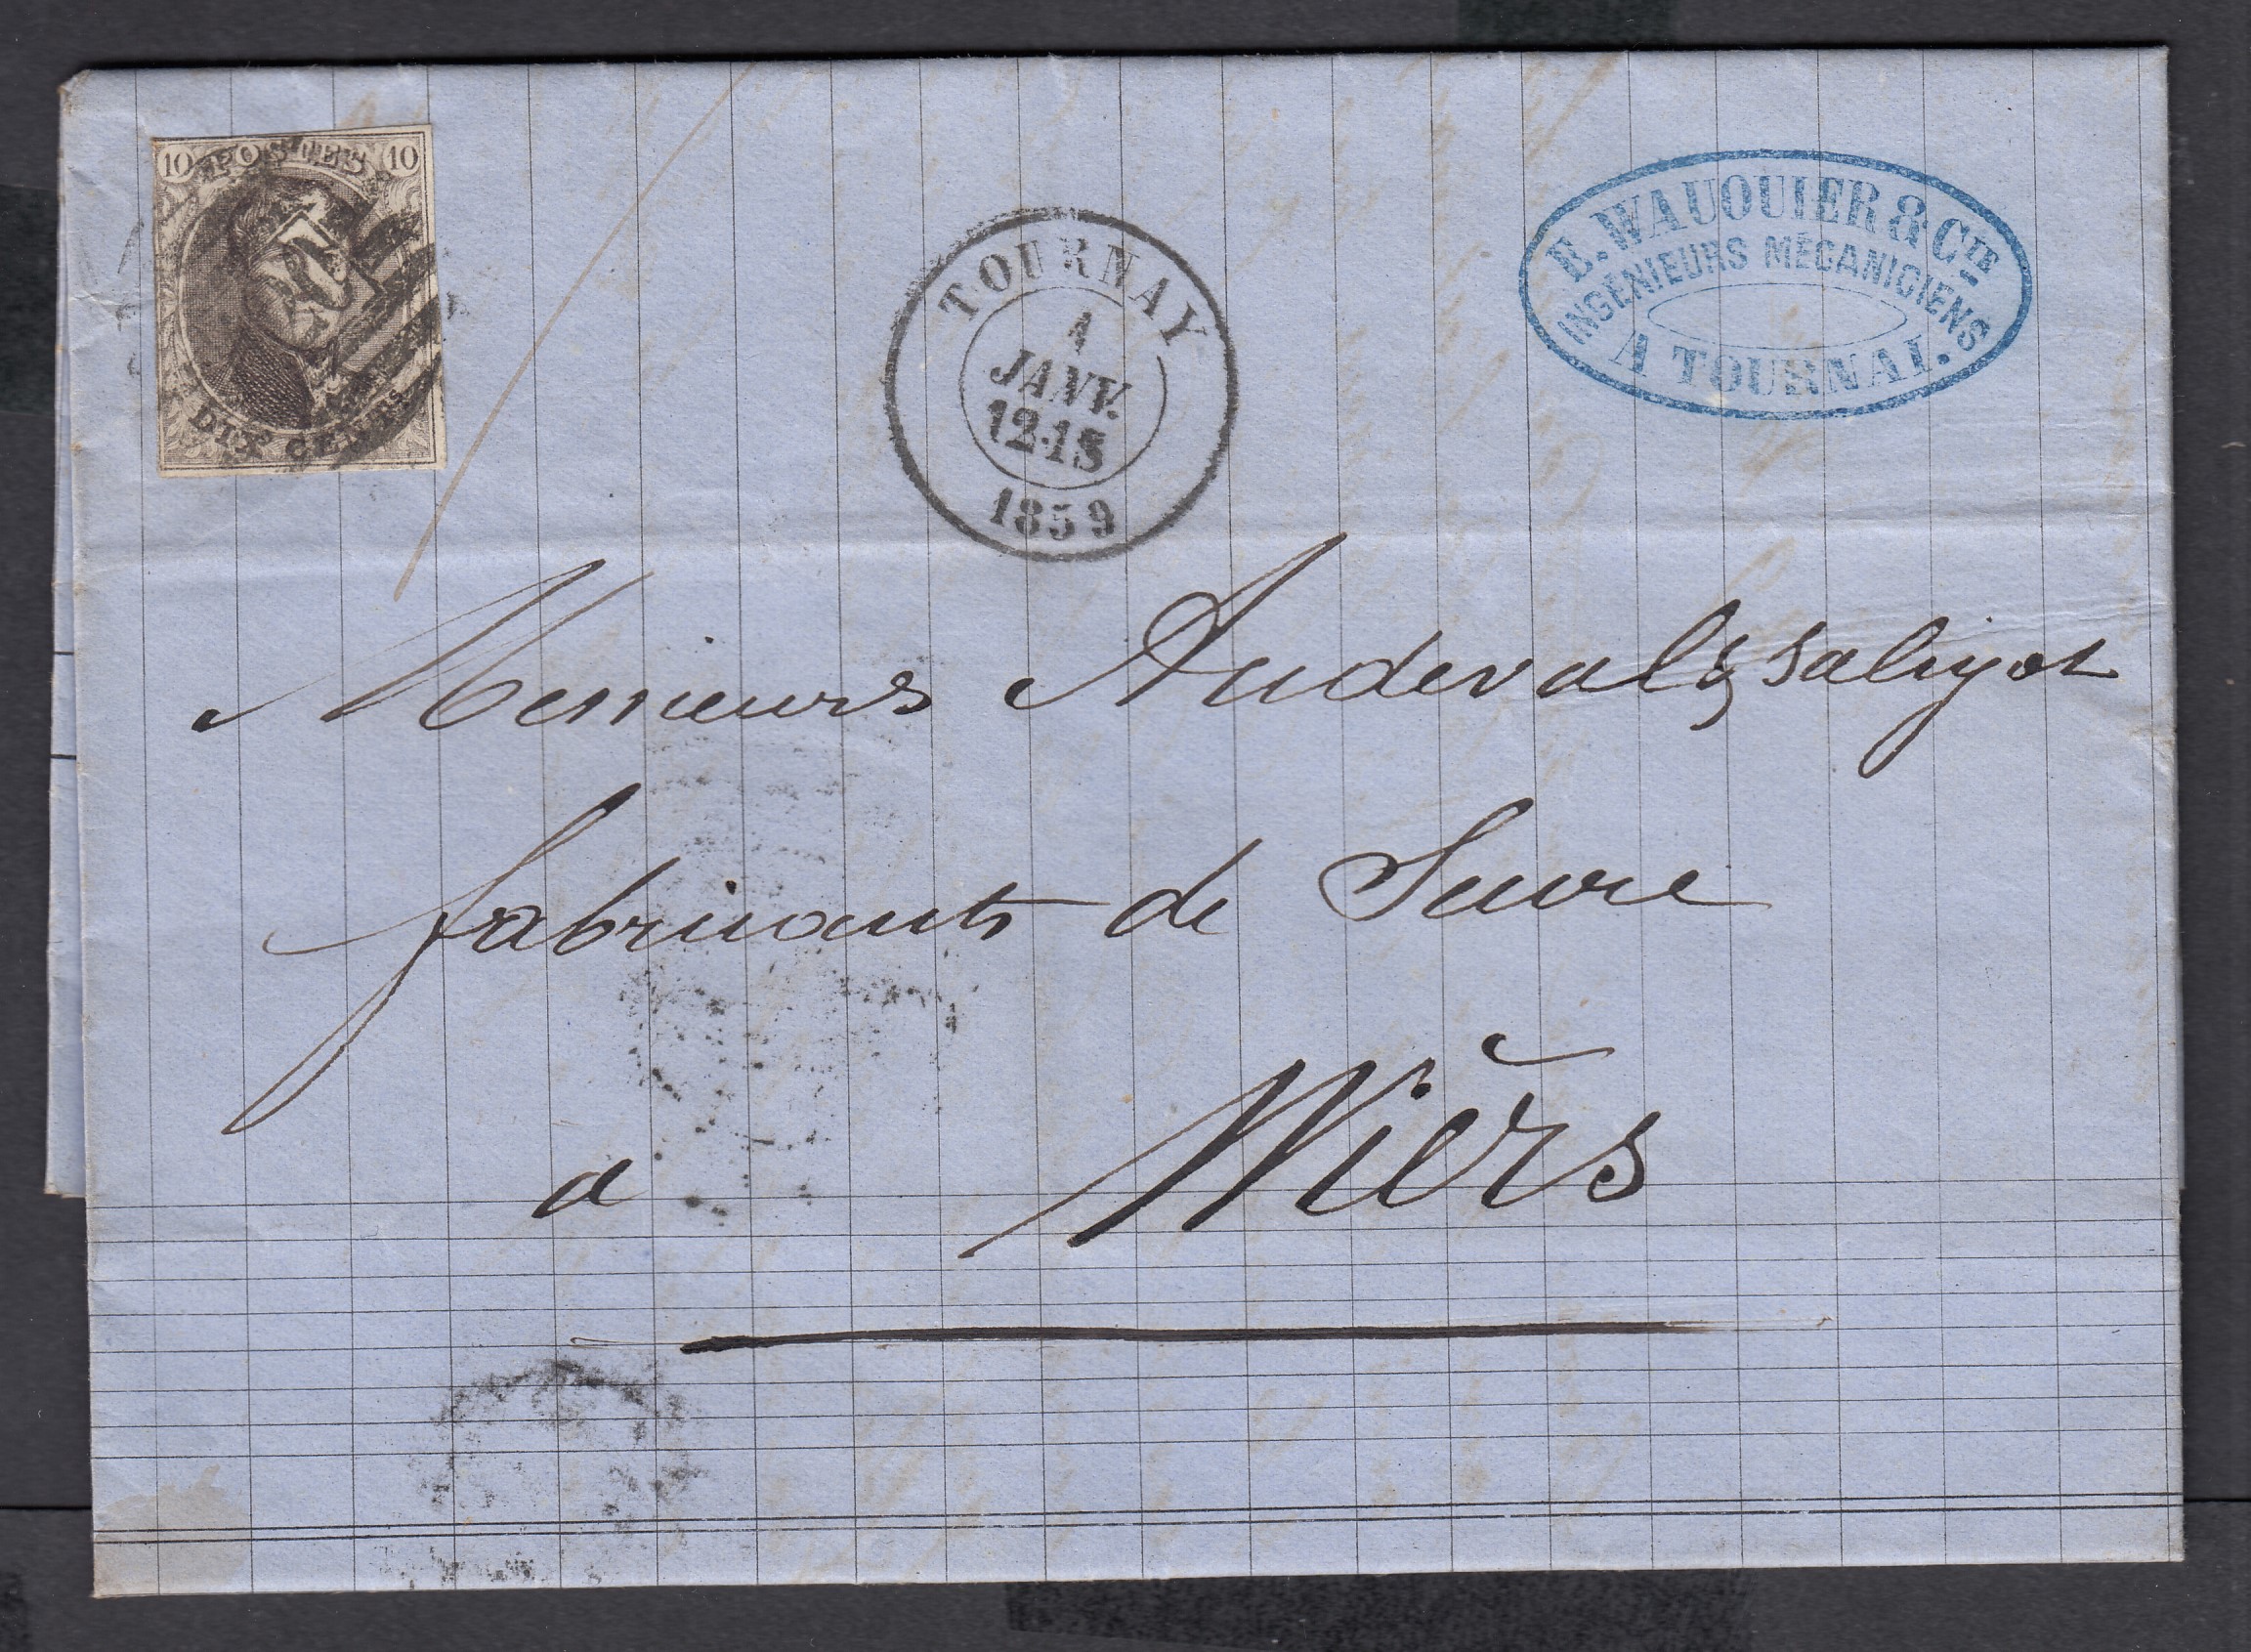 10 POSTES 10
DIX CENTS
TOURNAY
1
JANV.
12-1S
1859
E. WAUQUIER & CIE
INGÉNIEURS MÉCANICIENS
A TOURNAI.
Messieurs Andeval & Saligot
fabricants de Sucre
a Wiers